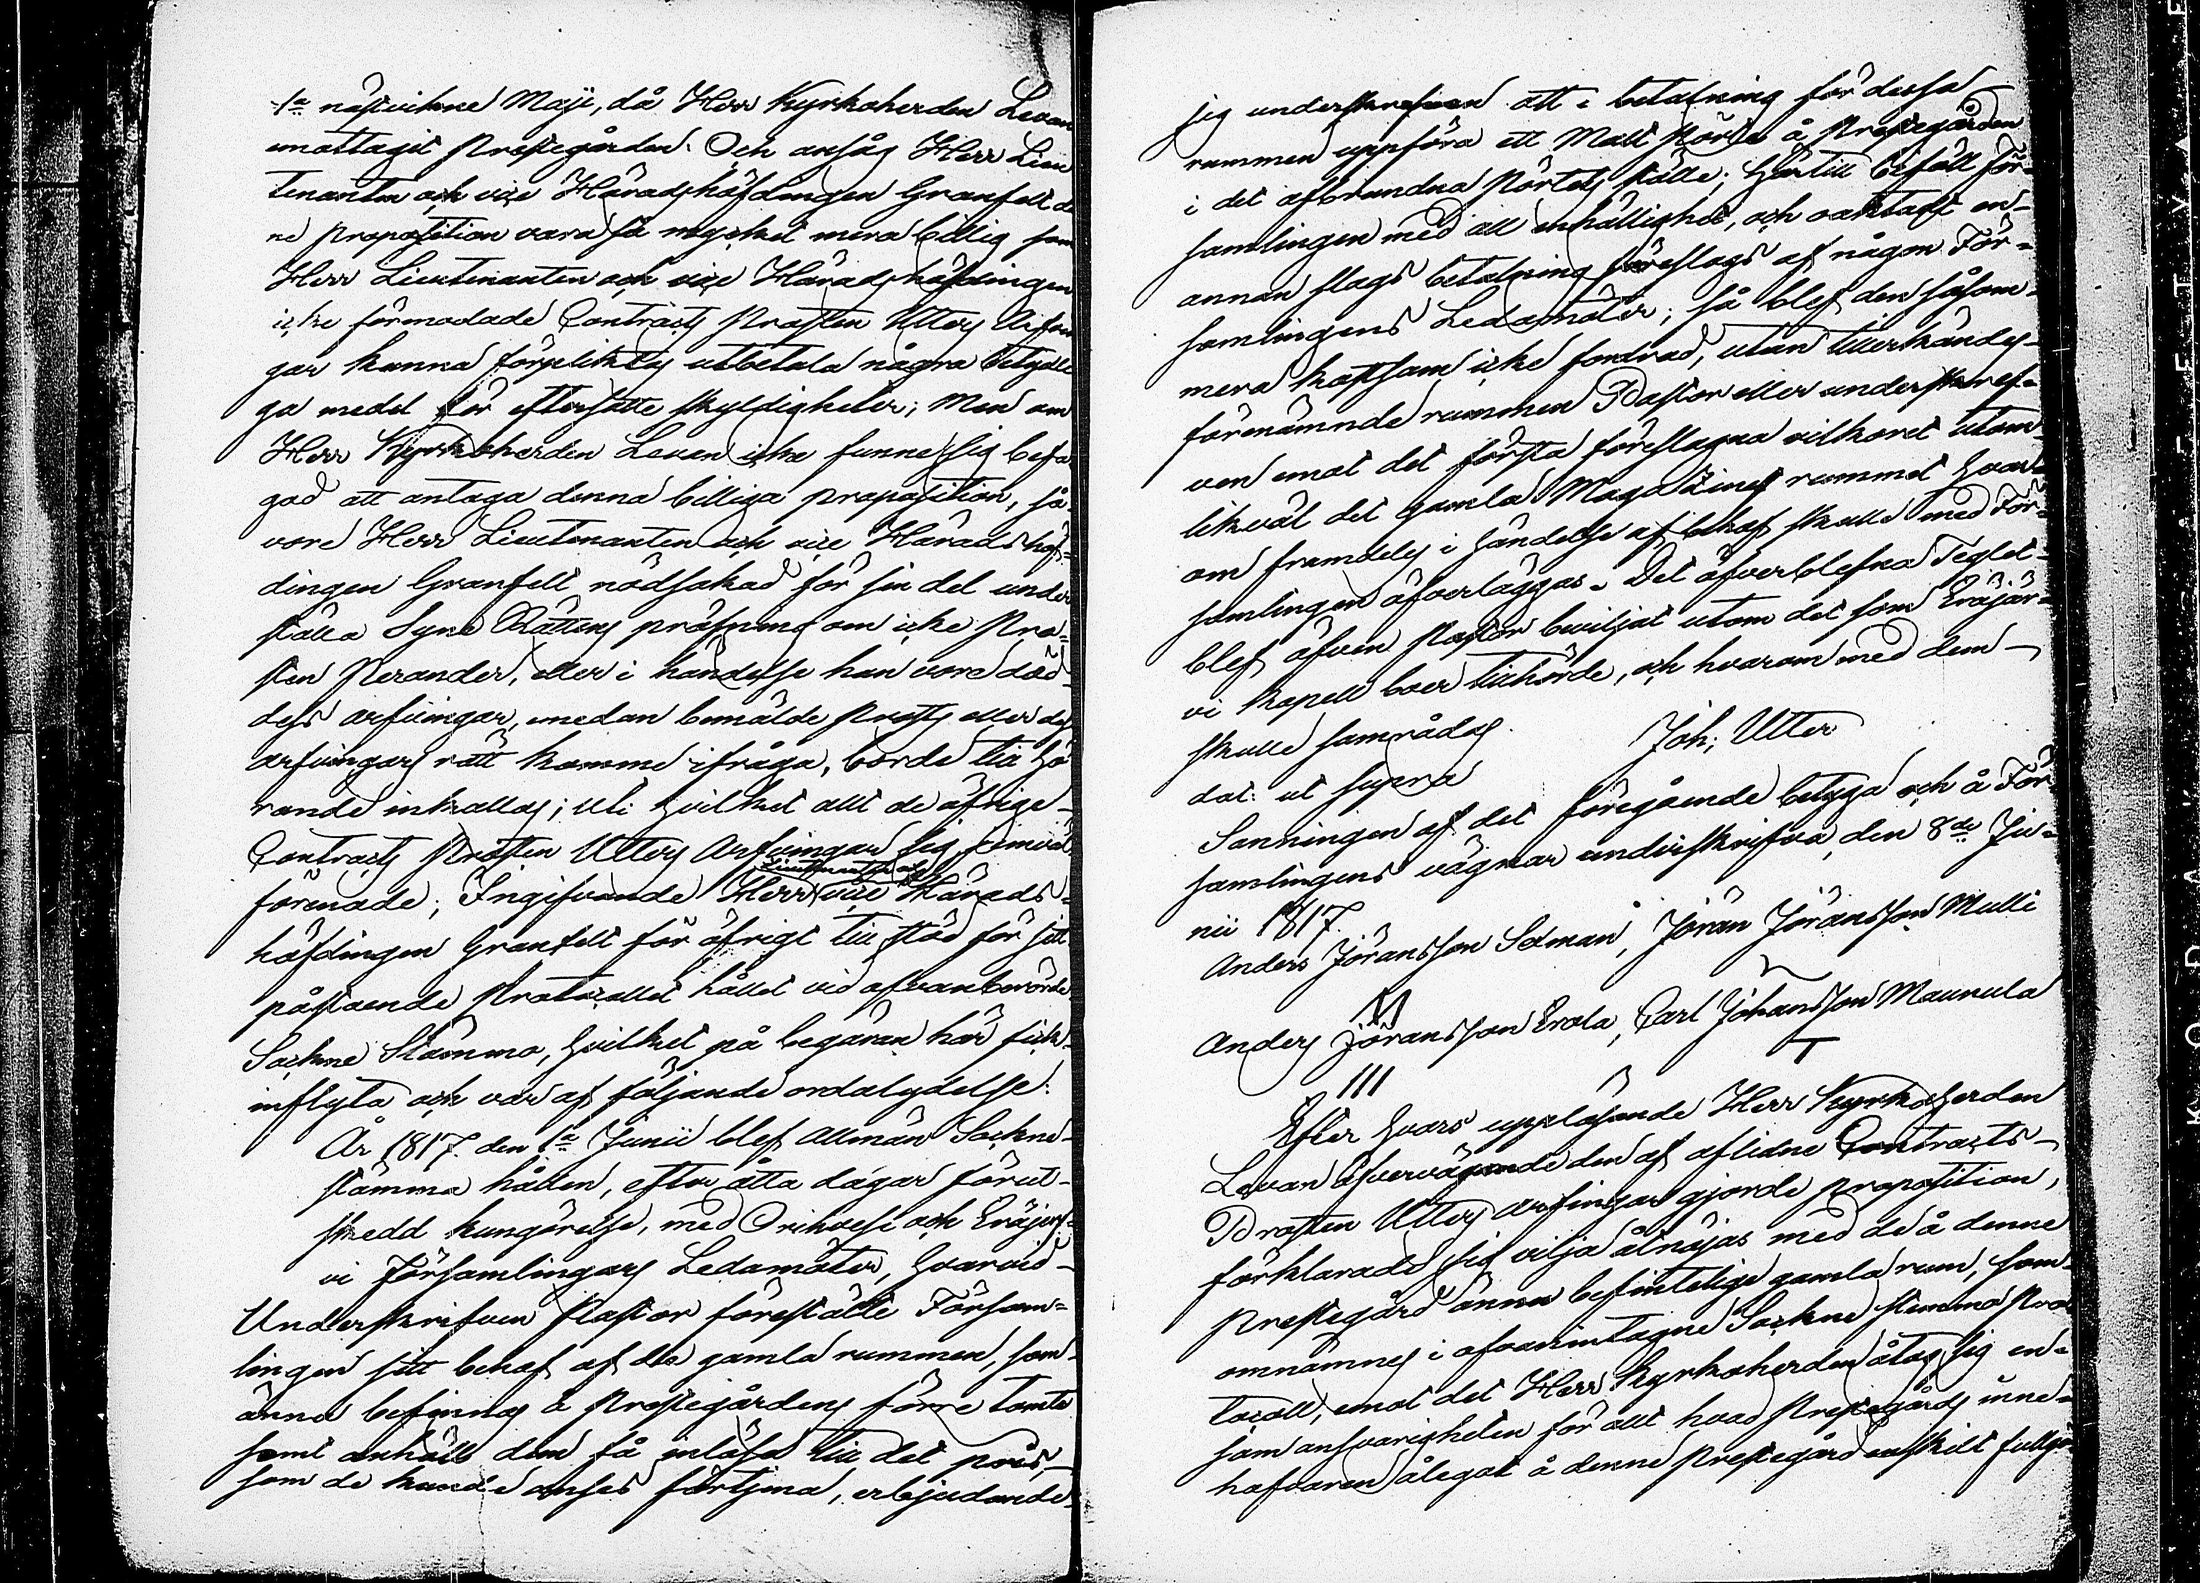 1a nästvikne Maji, då Herr Kyrkoherden Levan
emottagit Prestegården. Och ansåg Herr Lieu
tenanten och vice Häradshöfdingen Granfelt de
ne proposition vara så mycket mera billig som
Herr Lieutenanten och vice Häradshöfdingen
icke förmodade Contracts Prosten Utters Arfvin
gar kunna förpliktas utbetala några betydli
ga medel för eftersatte skyldigheter; Men om
Herr Kyrkoherden Levan icke funne sig befo
gad att antaga denna billiga proposition, så
vore Herr Lieutenanten och vice Häradshöf-
dingen Granfelt nödsakad för sin del under
ställa Syne Rättens pröfning om icke Pro-
sten Perander, eller i händelse han vore död
dess arfvingar, emedan bemälde Prosts eller dess
arfvingars rätt komme ifråga, borde till hö
rande inkallas; Uti hvilket allt de öfrige
Contracts Prosten Utters Arfvingar sig jemväl
förenade; Ingifvande Herr Lieutenanten och vice Härads-
höfdingen Granfelt för öfrigt till stöd för sitt
påstående Protocollet hållet vid ofvanberörde
Sockne Stämma, hvilket på begäran här fick
inflyta och var af följande ordalydelse:
År 1817 den 1a Junii blef allmän Sockne-
stämma hållen, efter åtta dagar förut-
skedd kungörelse, med Orihvesi och Eräjerf-
vi Församlingars Ledamöter, hvarvid
Underskrifven Pastor föreställte Försam-
lingen sitt behof af de gamla rummen, som
änna befinnas å Prestegårdens förre tomte
samt anhöll dem få inlösa till det pris,
som de kunde anses förtjena, erbjudande
sig underskrefven att i betalning för dessa
rummen uppföra ett Malt Pörte å Prestegården
i det afbrundna Pörtets ställe; härtill biföll För-
samlingen med all enhällighet, och oaktadt en
annan slags betalning föreslogs af någon För-
samlingens Ledamöter, så blef den såsom
mera kostsam icke fordrad, utan tillerkändes
förenämnde rummen Pastor eller underskref-
ven emot det första föreslagna vilkoret utom
likväl det gamla Magazinet rummet hvar
om framdeles i händelse af behof skulle med För-
samlingen öfverläggas. Det öfverblefna Teglet
blef äfven Pastor beviljat utom det som Eräjär-
vi Kapell boer tillhörde, och hvarom med dem
skulle samrådas.
dat: ut supra Joh: Utter
Sanningen af det föregående betyga och å För
samlingens vägnar underskrifva, den 8de Ju-
nii 1817.
Anders Jöransson Sexman, Jöran Jöransson Mulli
Anders Jöransson Erola, Carl Johansson Maunula
III T
Efter hvars uppläsande Herr Kyrkoherden
Levan öfvervägande den af aflidne Contracts-
Prosten Utters arfvingar gjorde proposition,
förklarade sig vilja åtnöjas med de å denne
Prestegård ännu befintelige gamla rum, som
omnämnes i ofvanintagne Sockne stämmo Pro
tocoll, emot det Herr Kyrkoherden åtog sig en-
sam ansvarigheten för allt hvad Prestegårds inne-
hafvaren ålegat å denne Prestegård enskilt fullgö